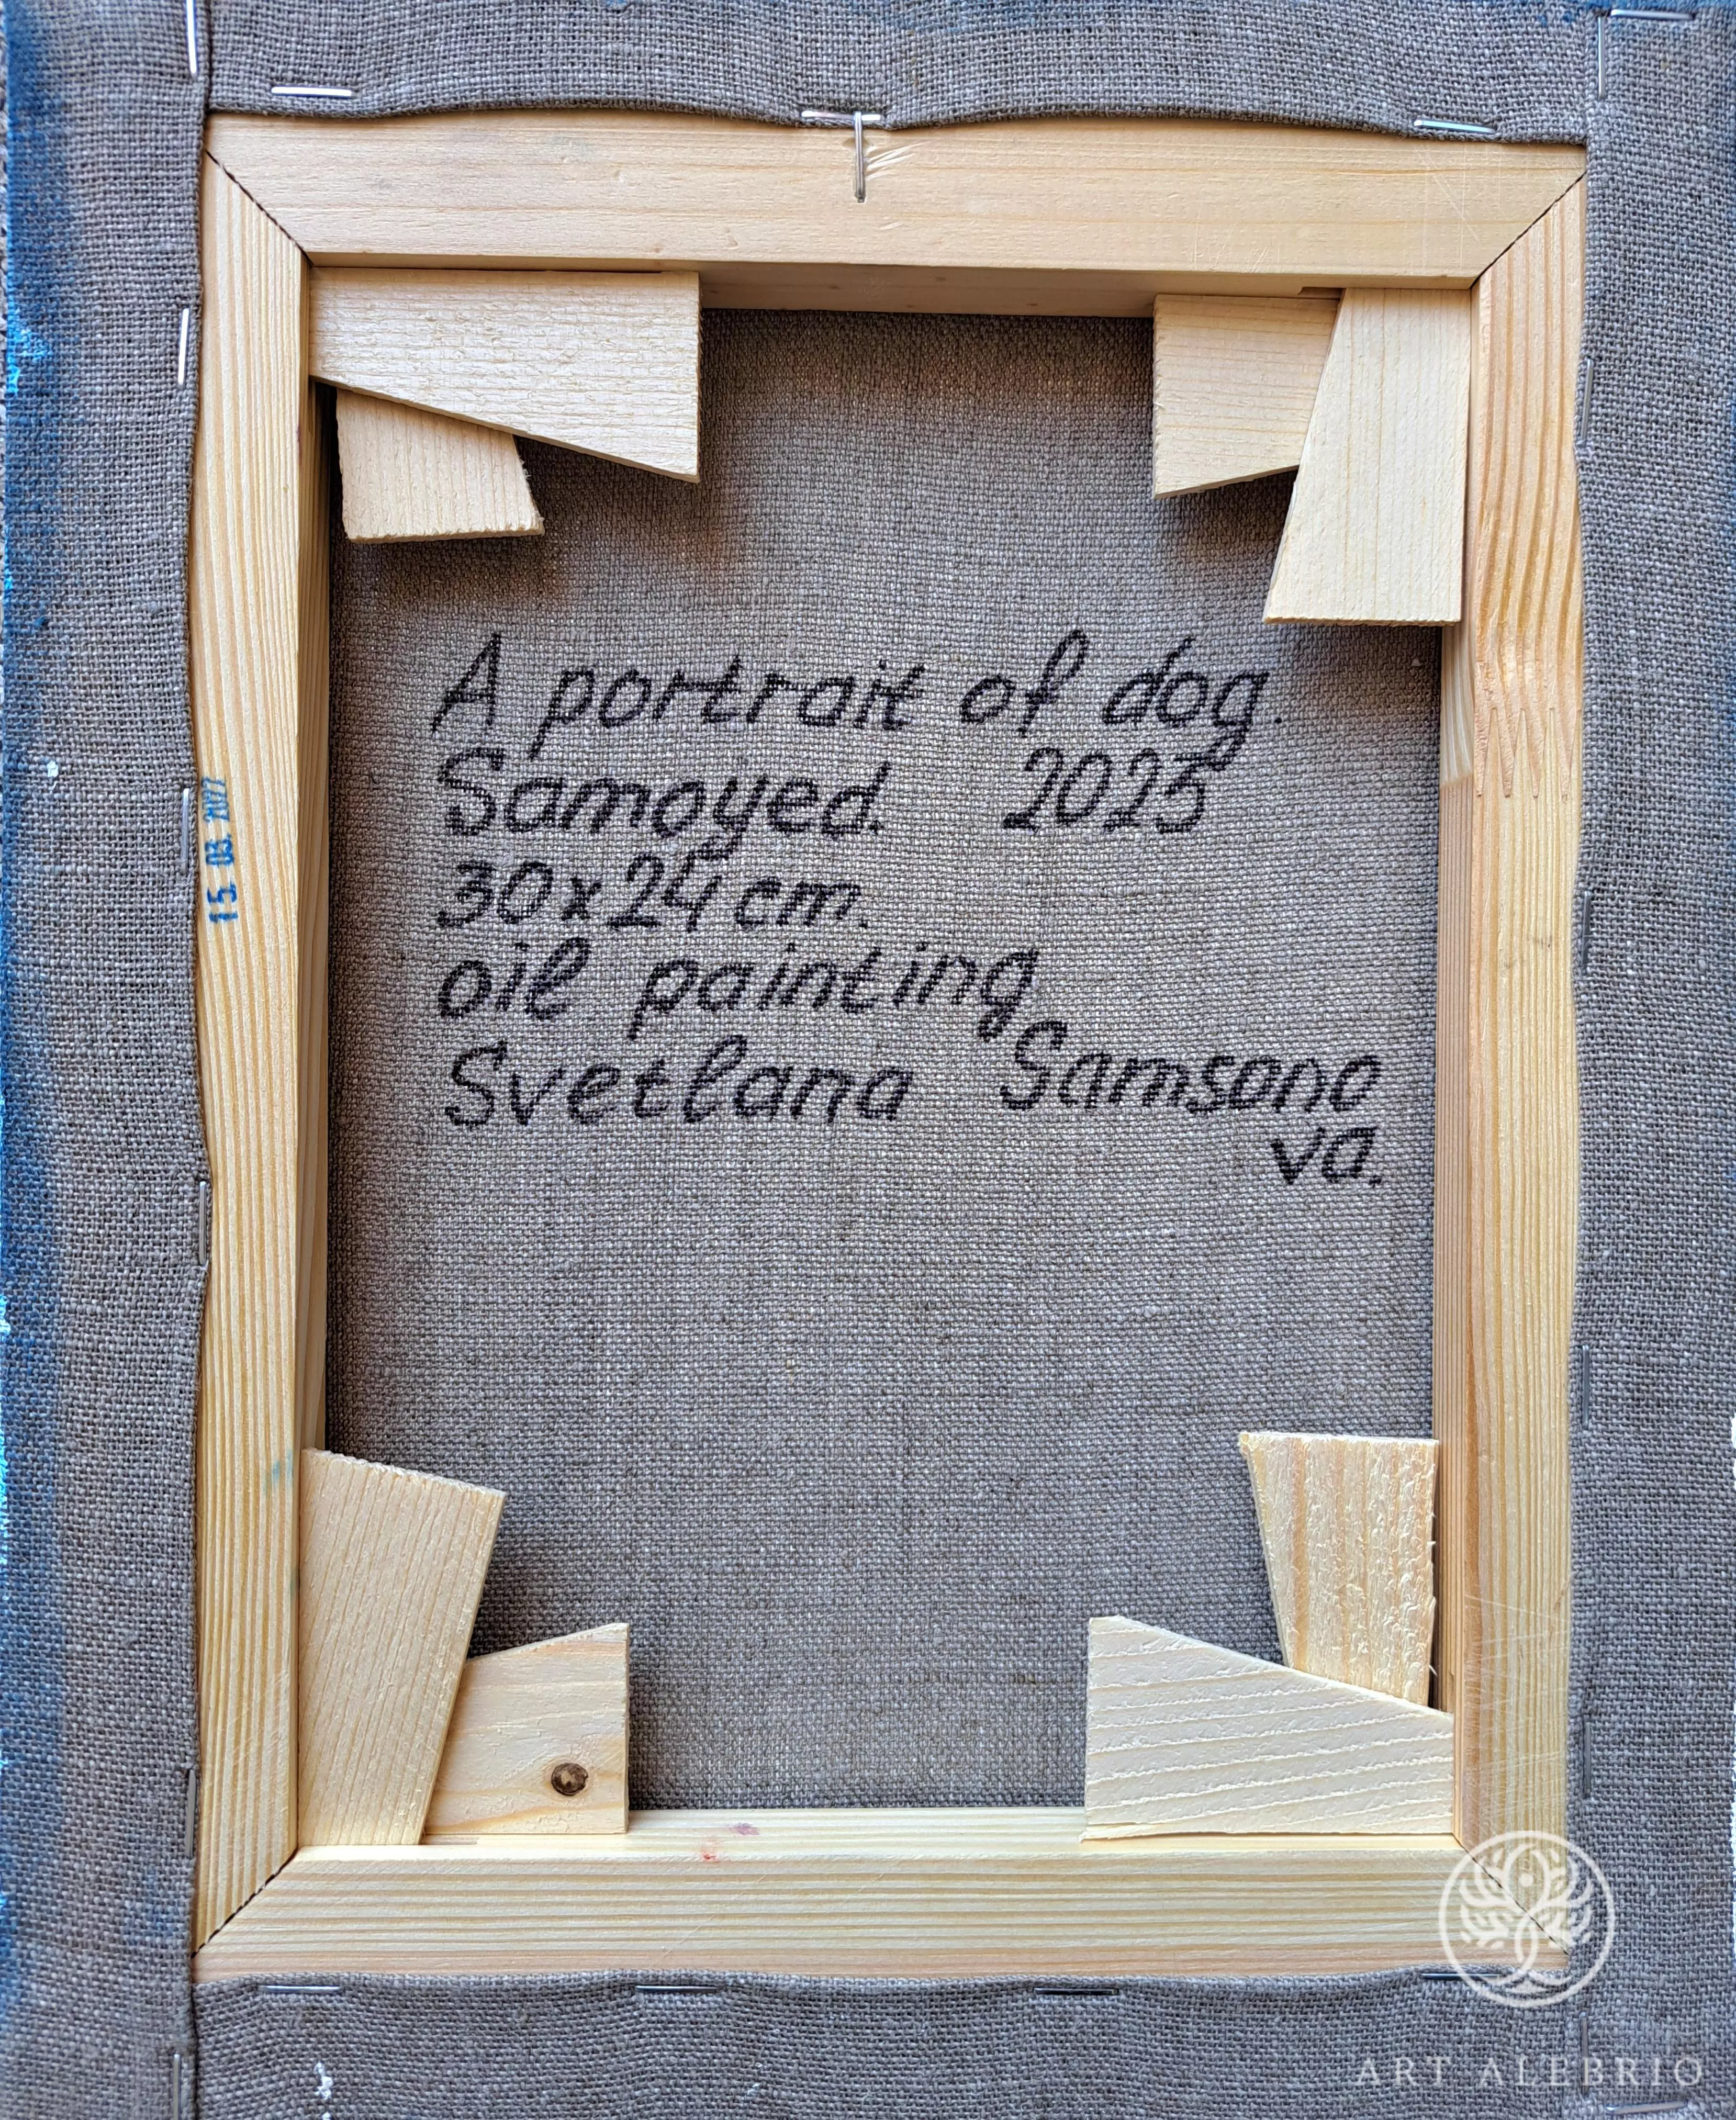 A portrait of dog.
Samoyed. 2023
30x24 cm.
oil painting
Svetlana Samsono
va.
15. 03. 2022
ART ALEBRIO